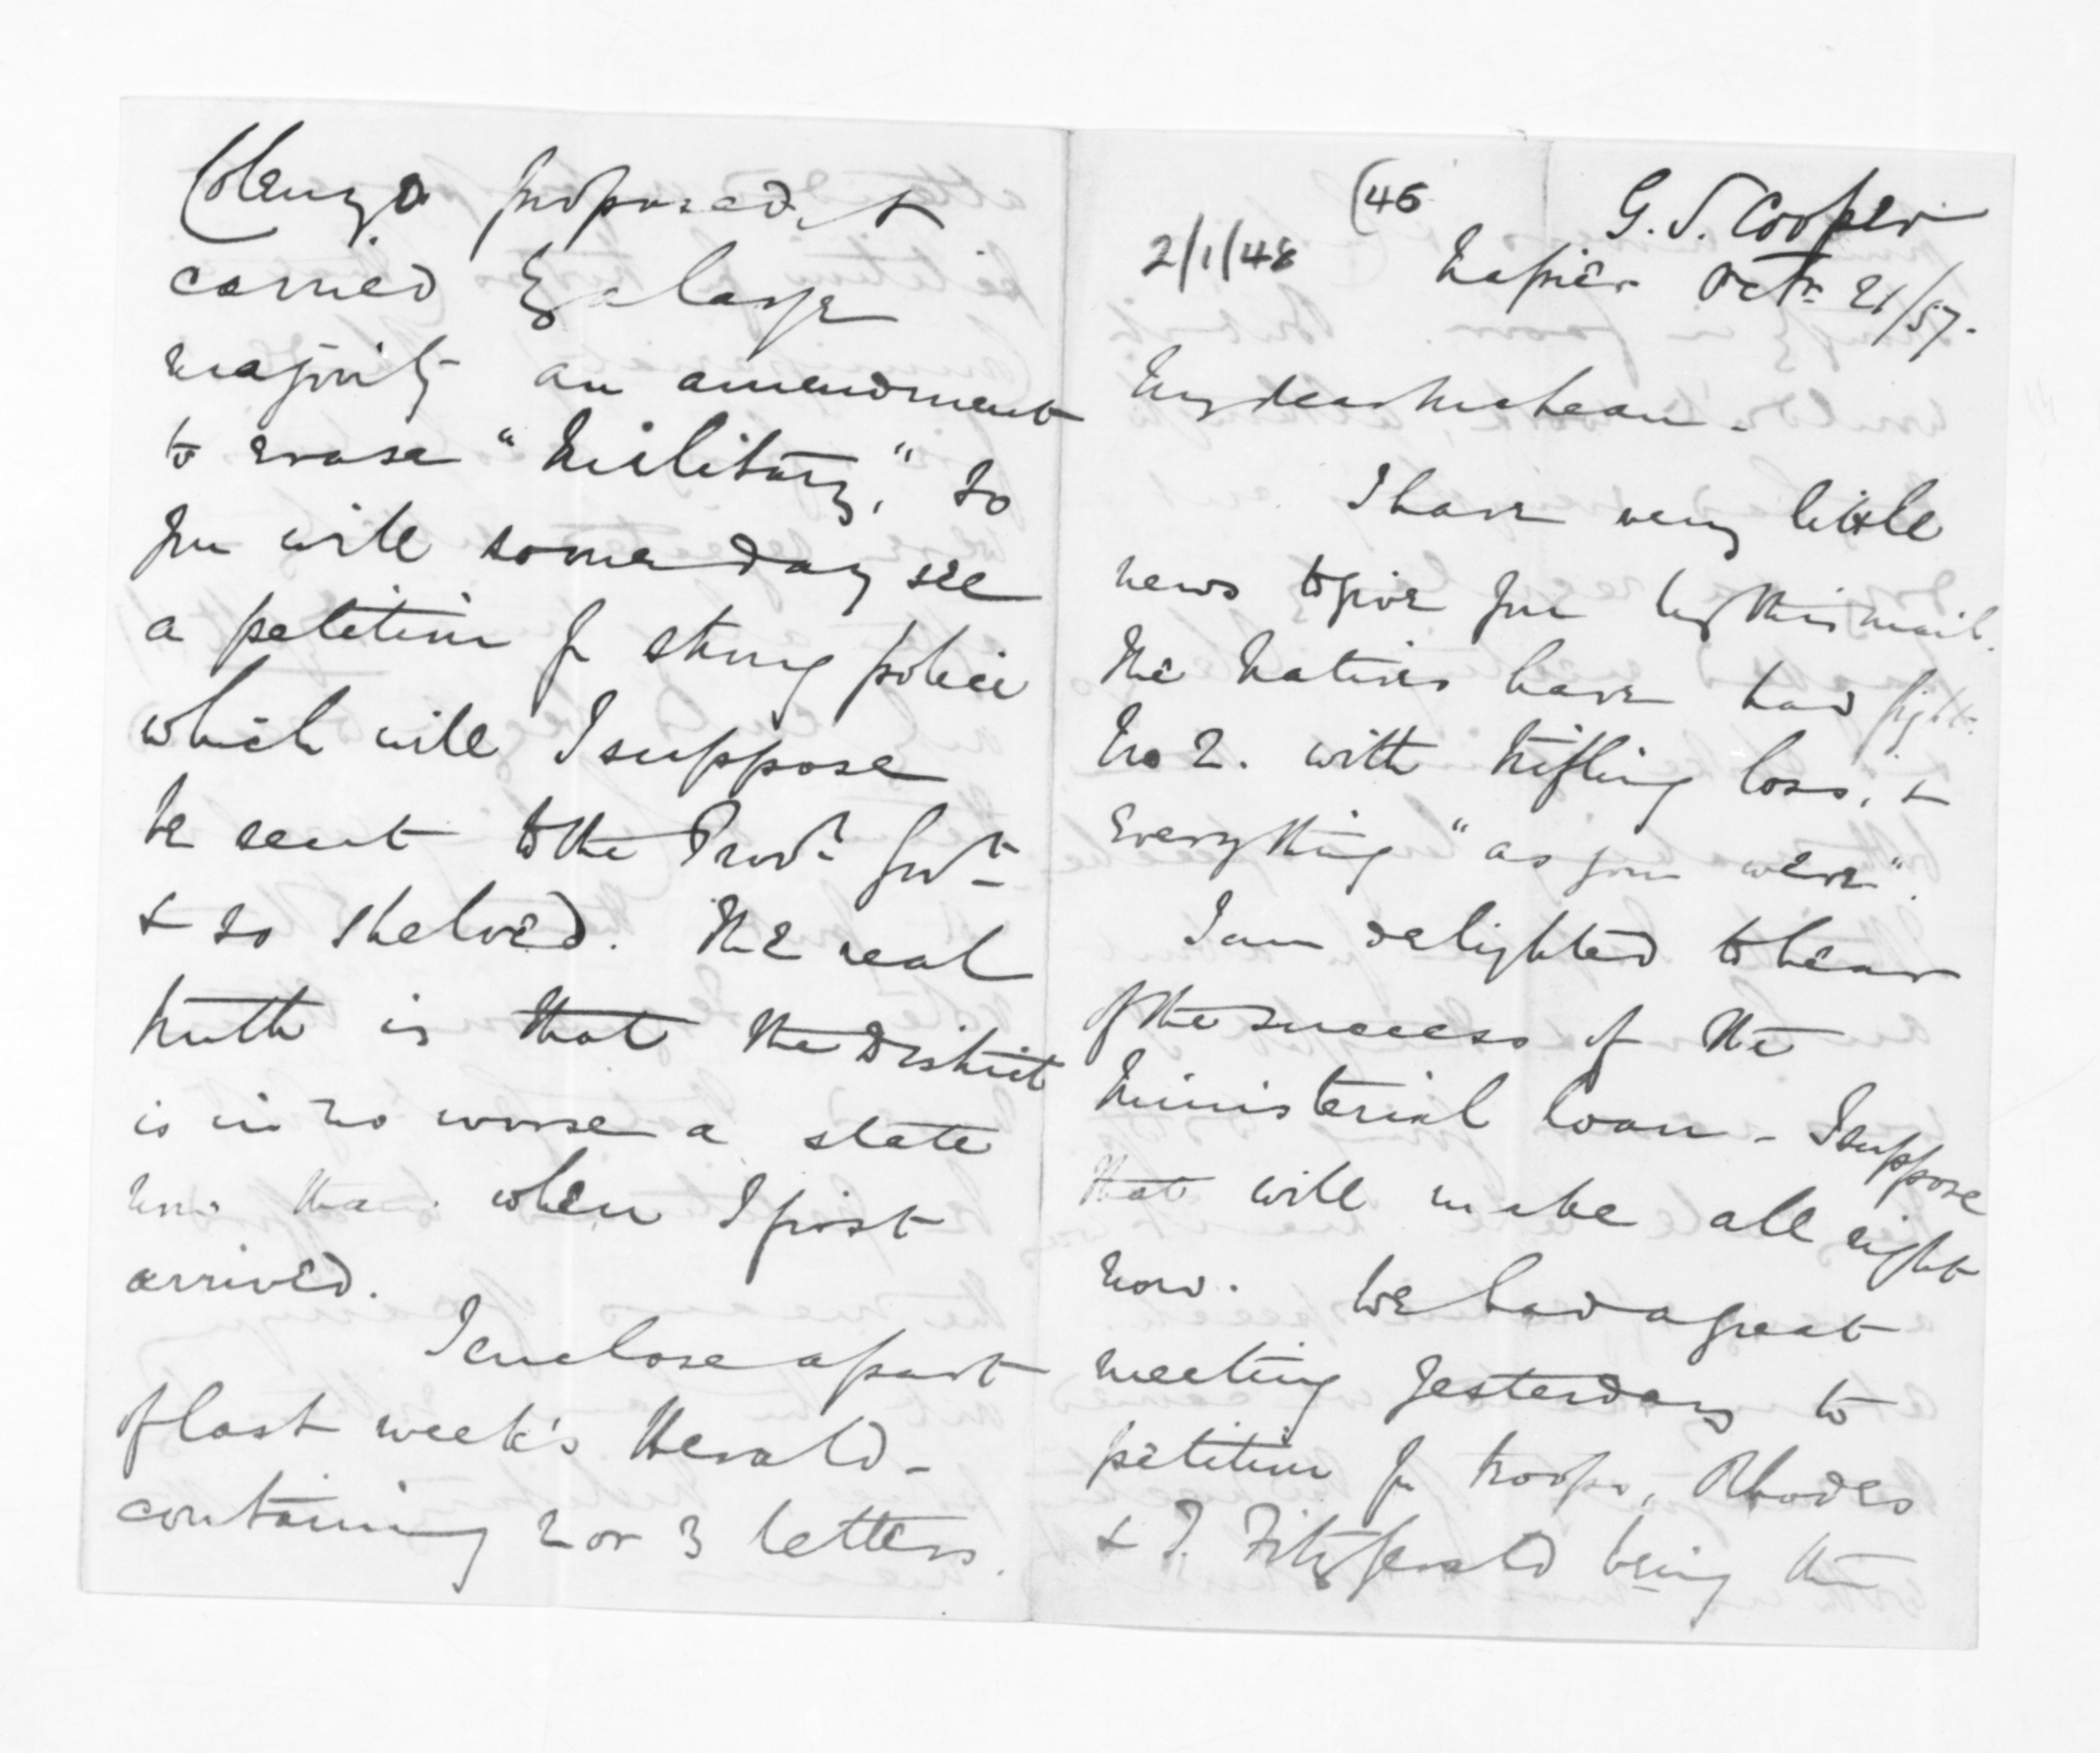 (46
G. S. Cooper
2/1/48
Napier Octr 21/57.
My dear McLean -
I have very little
news to give you by this mail.
The Natives have had fight
No 2. with trifling loss, &
everything "as you were".
I am delighted to hear
of the success of the
Ministerial loan - I suppose
that will make all right
now. We had a great
meeting yesterday to
petition for troops, Rhodes
& T. Fitzgerald being the
Colenzo proposed &
carried by a large
majority an amendment
to erase "Military," so
you will some day see
a petition for strong police
which will I suppose
be sent to the Provl Govt
& so shelved. The real
truth is that the District
is in no worse a state
now than when I first
arrived.
I enclose a part
of last week's Herald -
containing 2 or 3 letters.